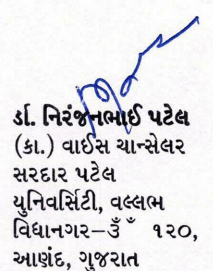 ર્ડા. નિરંજનભાઈ પટેલ
(કા.) વાઈસ ચાન્સેલર
સરદાર પટેલ
યુનિવર્સિટી, વલ્લભ
વિધાનગર–૩ઁ ૱ ૧૨૦,
આણંદ, ગુજરાત